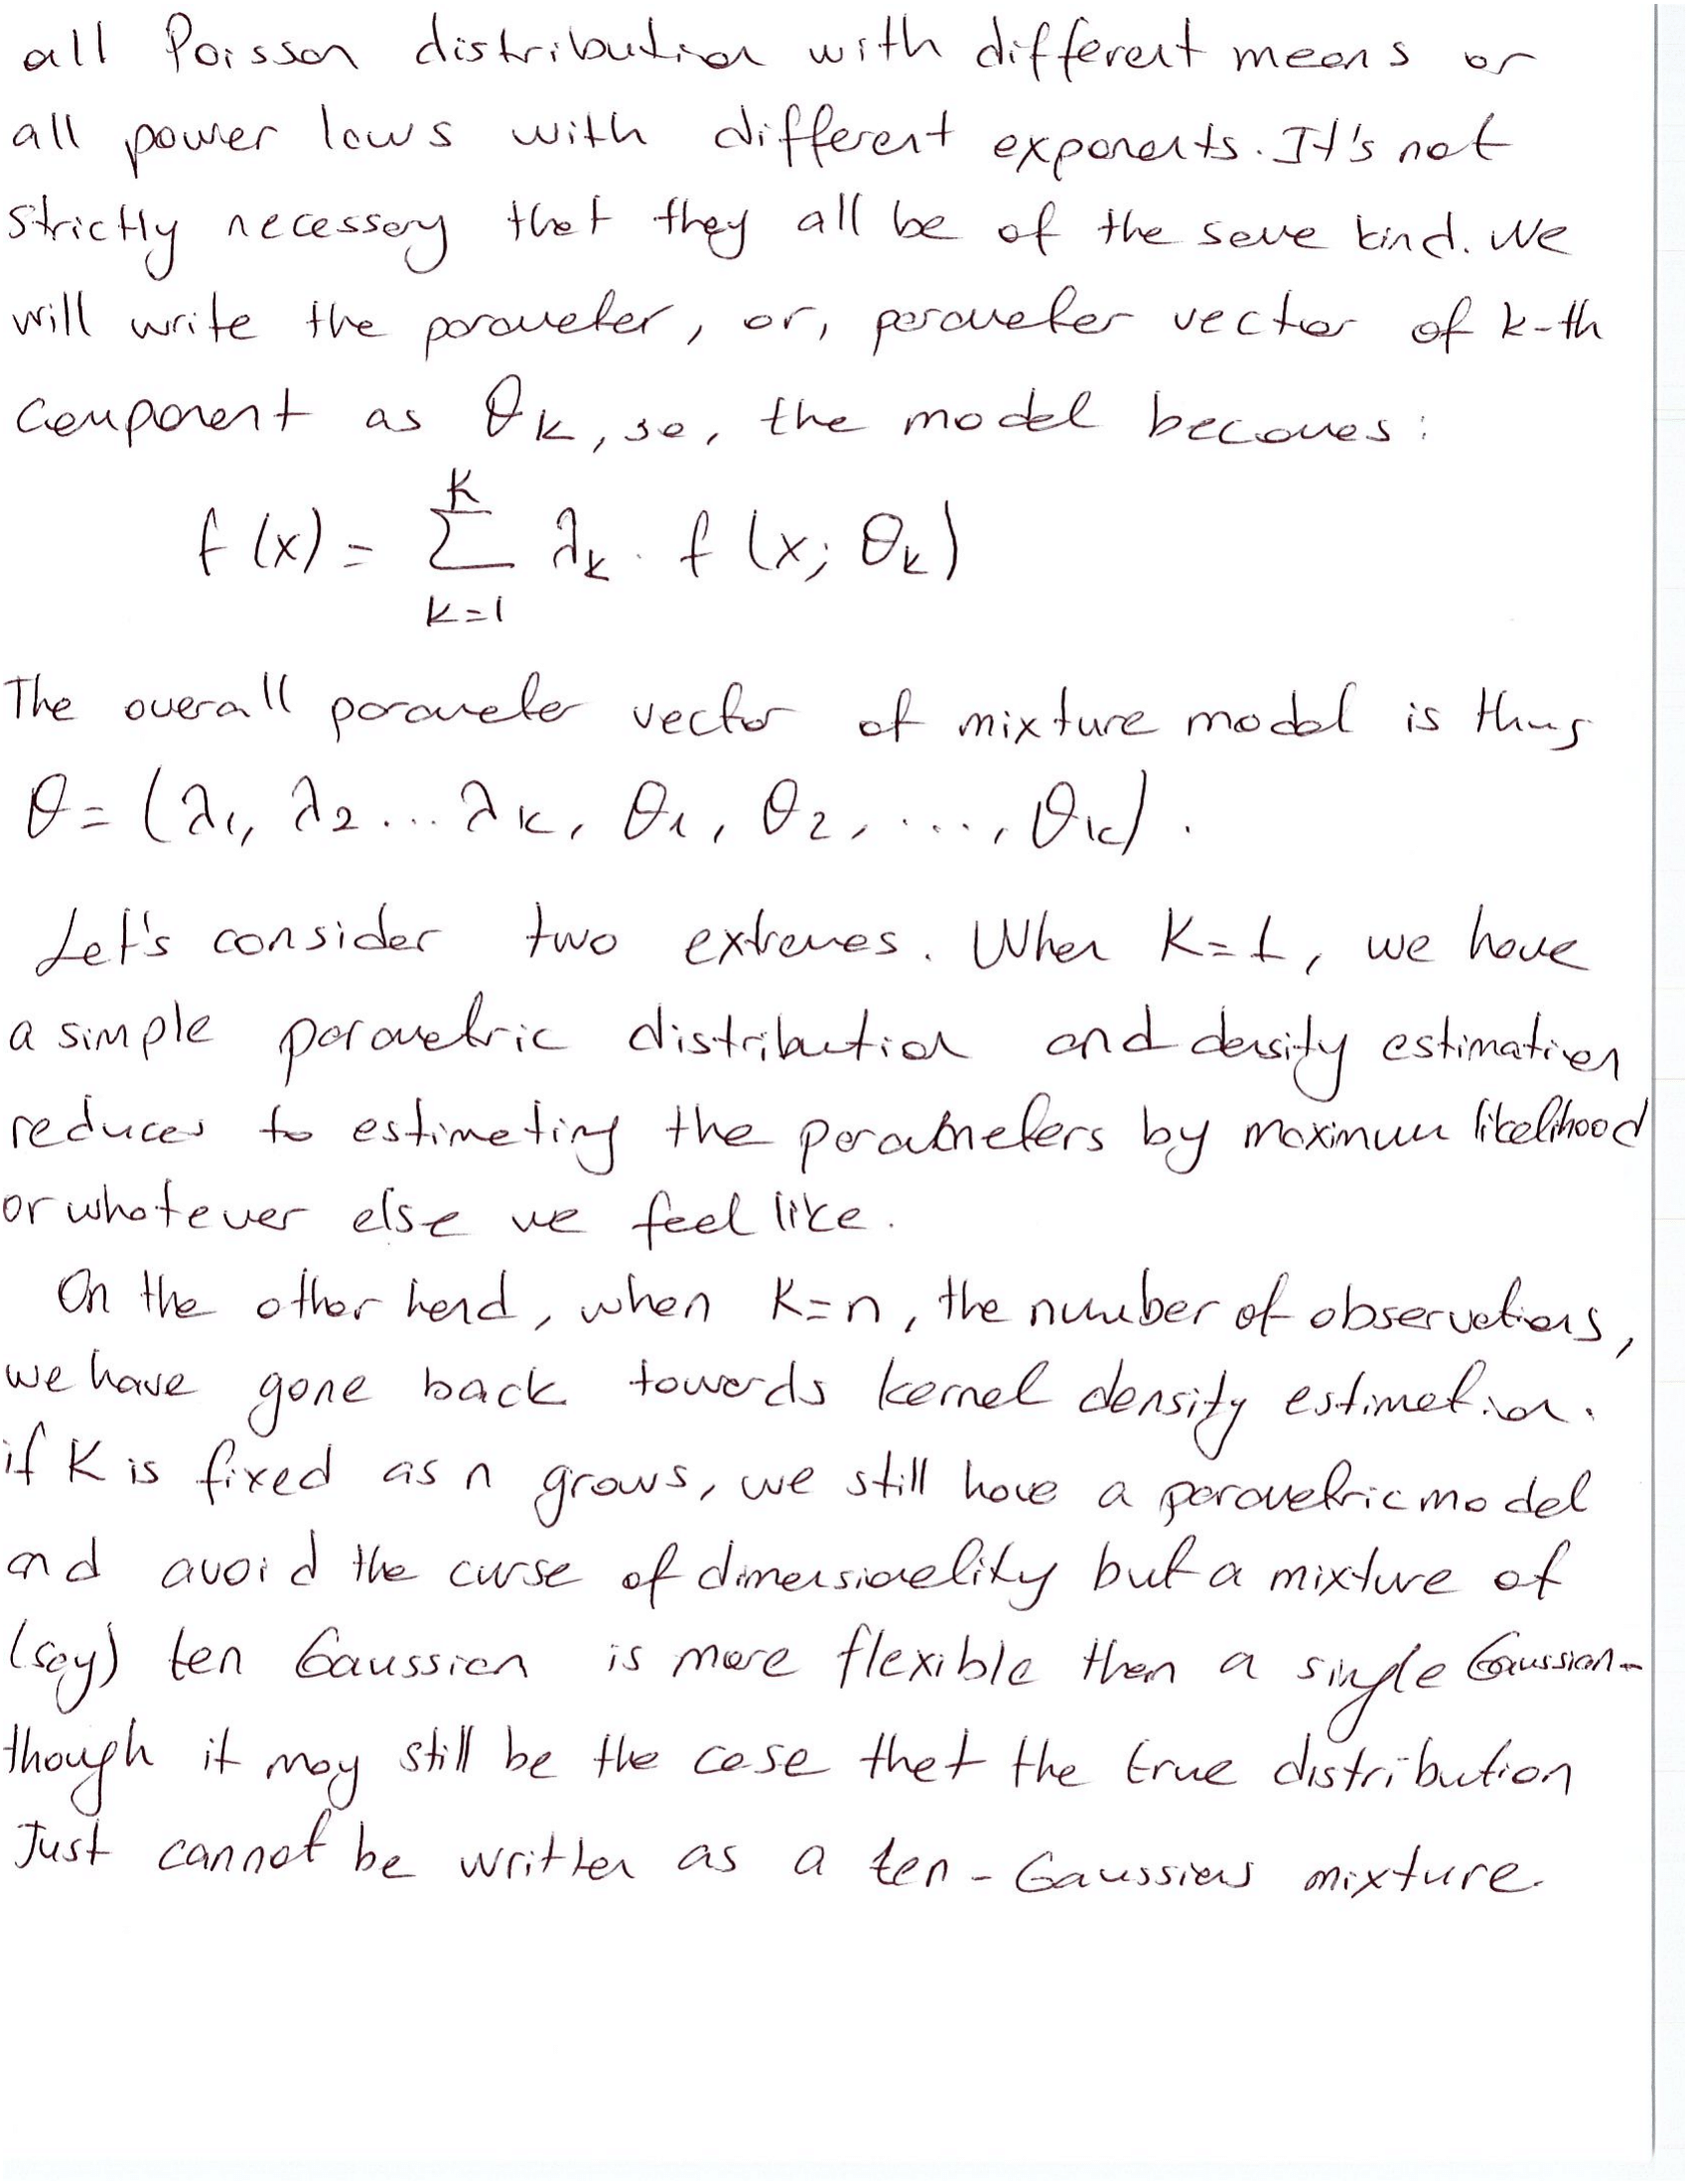 all Poisson distribution with different means or
all power laws with different exponents. It's not
strictly necessary that they all be of the same kind. We
will write the parameter, or, parameter vector of k-th
component as θk, so, the model becomes:
f(x) = K∑k=1 λk · f(x; θk)
The overall parameter vector of mixture model is thus
θ = (λ1, λ2 ... λK, θ1, θ2, ..., θK).
Let's consider two extremes. When K=1, we have
a simple parametric distribution and density estimation
reduces to estimating the parameters by maximum likelihood
or whatever else we feel like.
On the other hand, when K=n, the number of observations,
we have gone back towards kernel density estimation.
if K is fixed as n grows, we still have a parametric model
and avoid the curse of dimensionality but a mixture of
(say) ten Gaussian is more flexible than a single Gaussian-
though it may still be the case that the true distribution
Just cannot be written as a ten-Gaussians mixture.